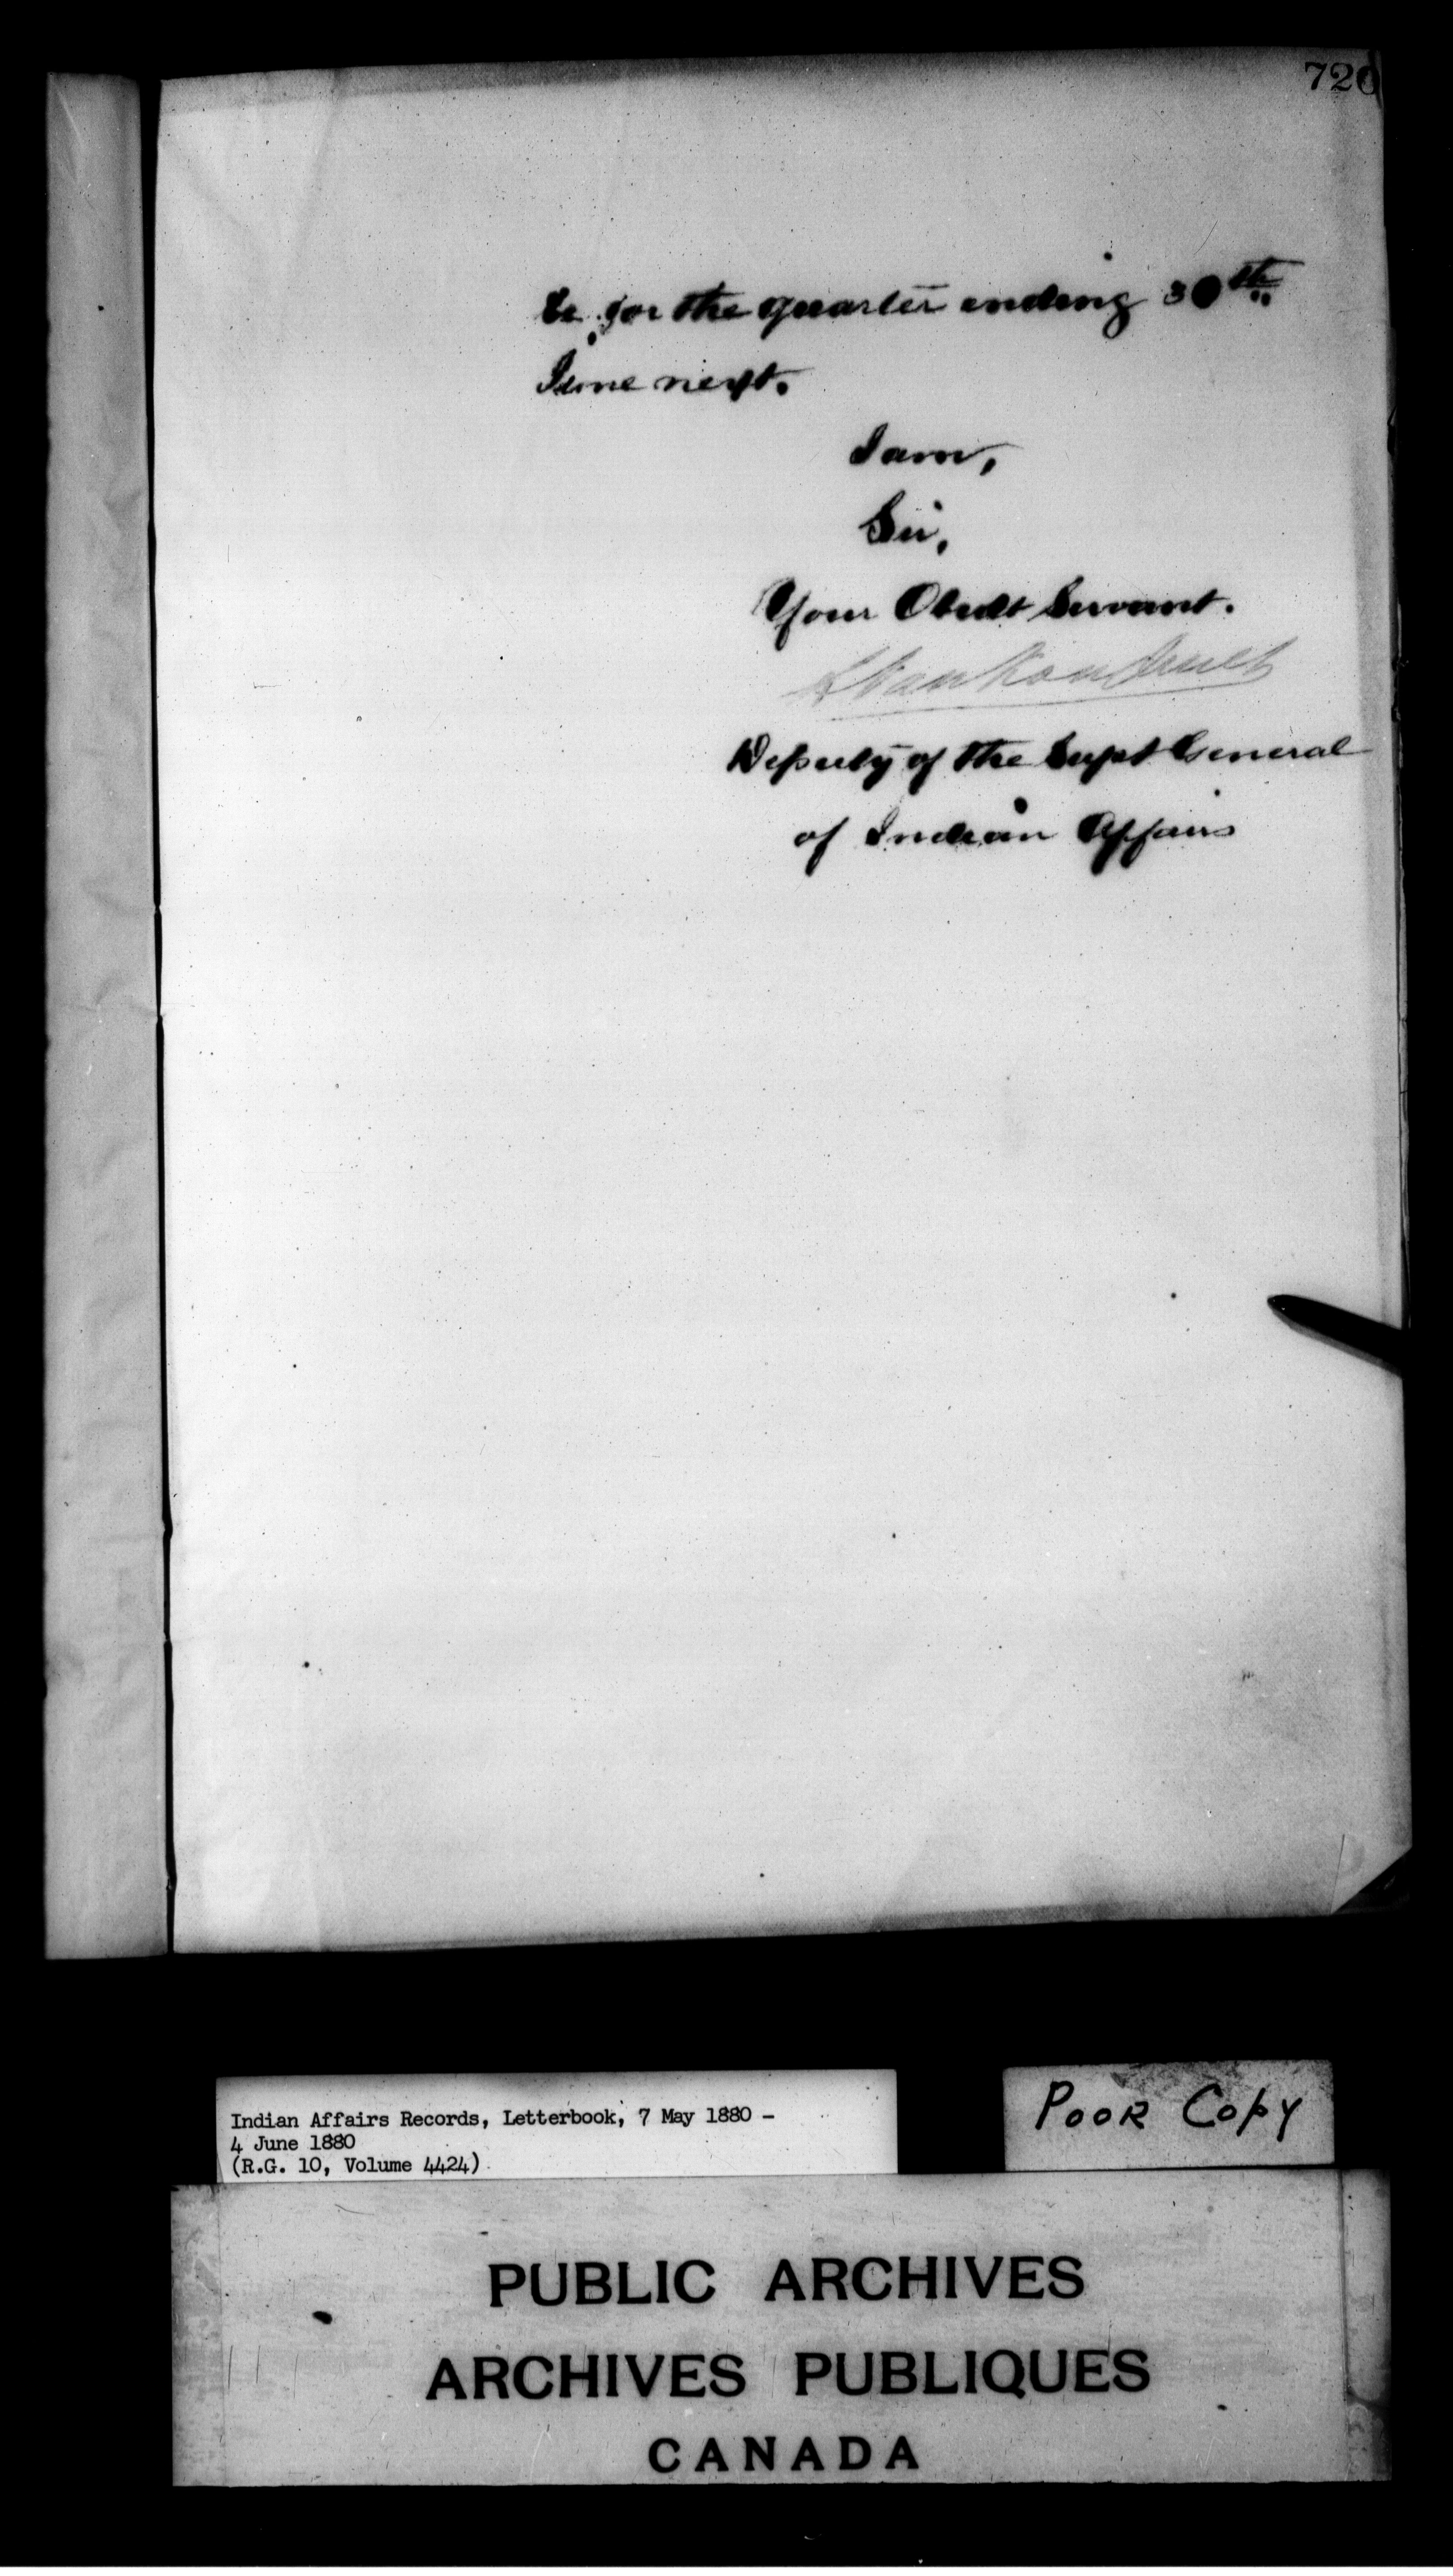 720
&c. for the quarter ending 30th
June next.
I am,
Sir,
Your Obedt Servant.
L VanKoughnet
Deputy of the Supt General
of Indian Affairs
Indian Affairs Records, Letterbook, 7 May 1880 -
4 June 1880
(R.G. 10, Volume 4424)
POOR COPY
PUBLIC ARCHIVES
ARCHIVES PUBLIQUES
CANADA